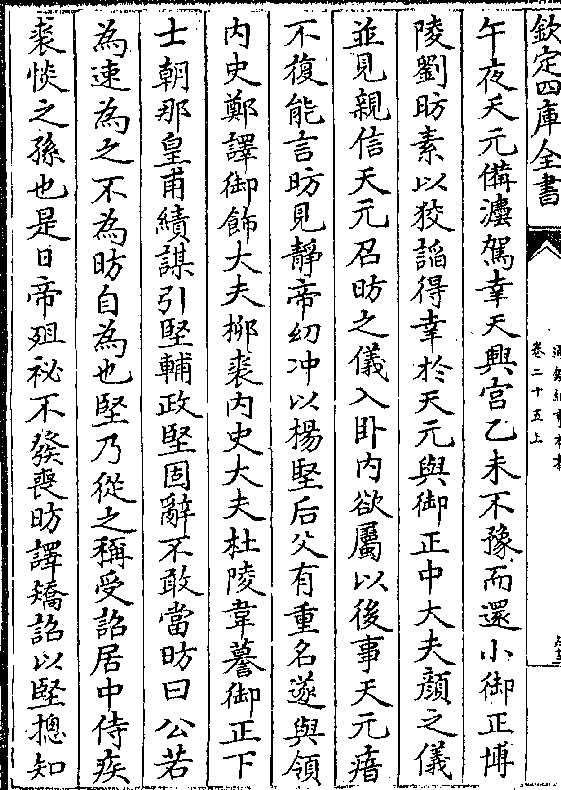 欽定四庫全書
卷二十五上
午夜天元備灋駕幸天興宫乙未不豫而還小御正博
陵劉昉素以狡諂得幸於天元與御正中大夫顔之儀
並見親信天元召昉之儀入卧内欲屬以後事天元瘖
不復能言昉見靜帝幼冲以楊堅后父有重名遂與領
内史鄭譯御飾大夫栁裘内史大夫杜陵韋謩御正下
士朝那皇甫績謀引堅輔政堅固辭不敢當昉曰公若
為速為之不為昉自為也堅乃從之稱受詔居中侍疾
裘惔之孫也是日帝殂祕不發喪昉譯矯詔以堅揔知